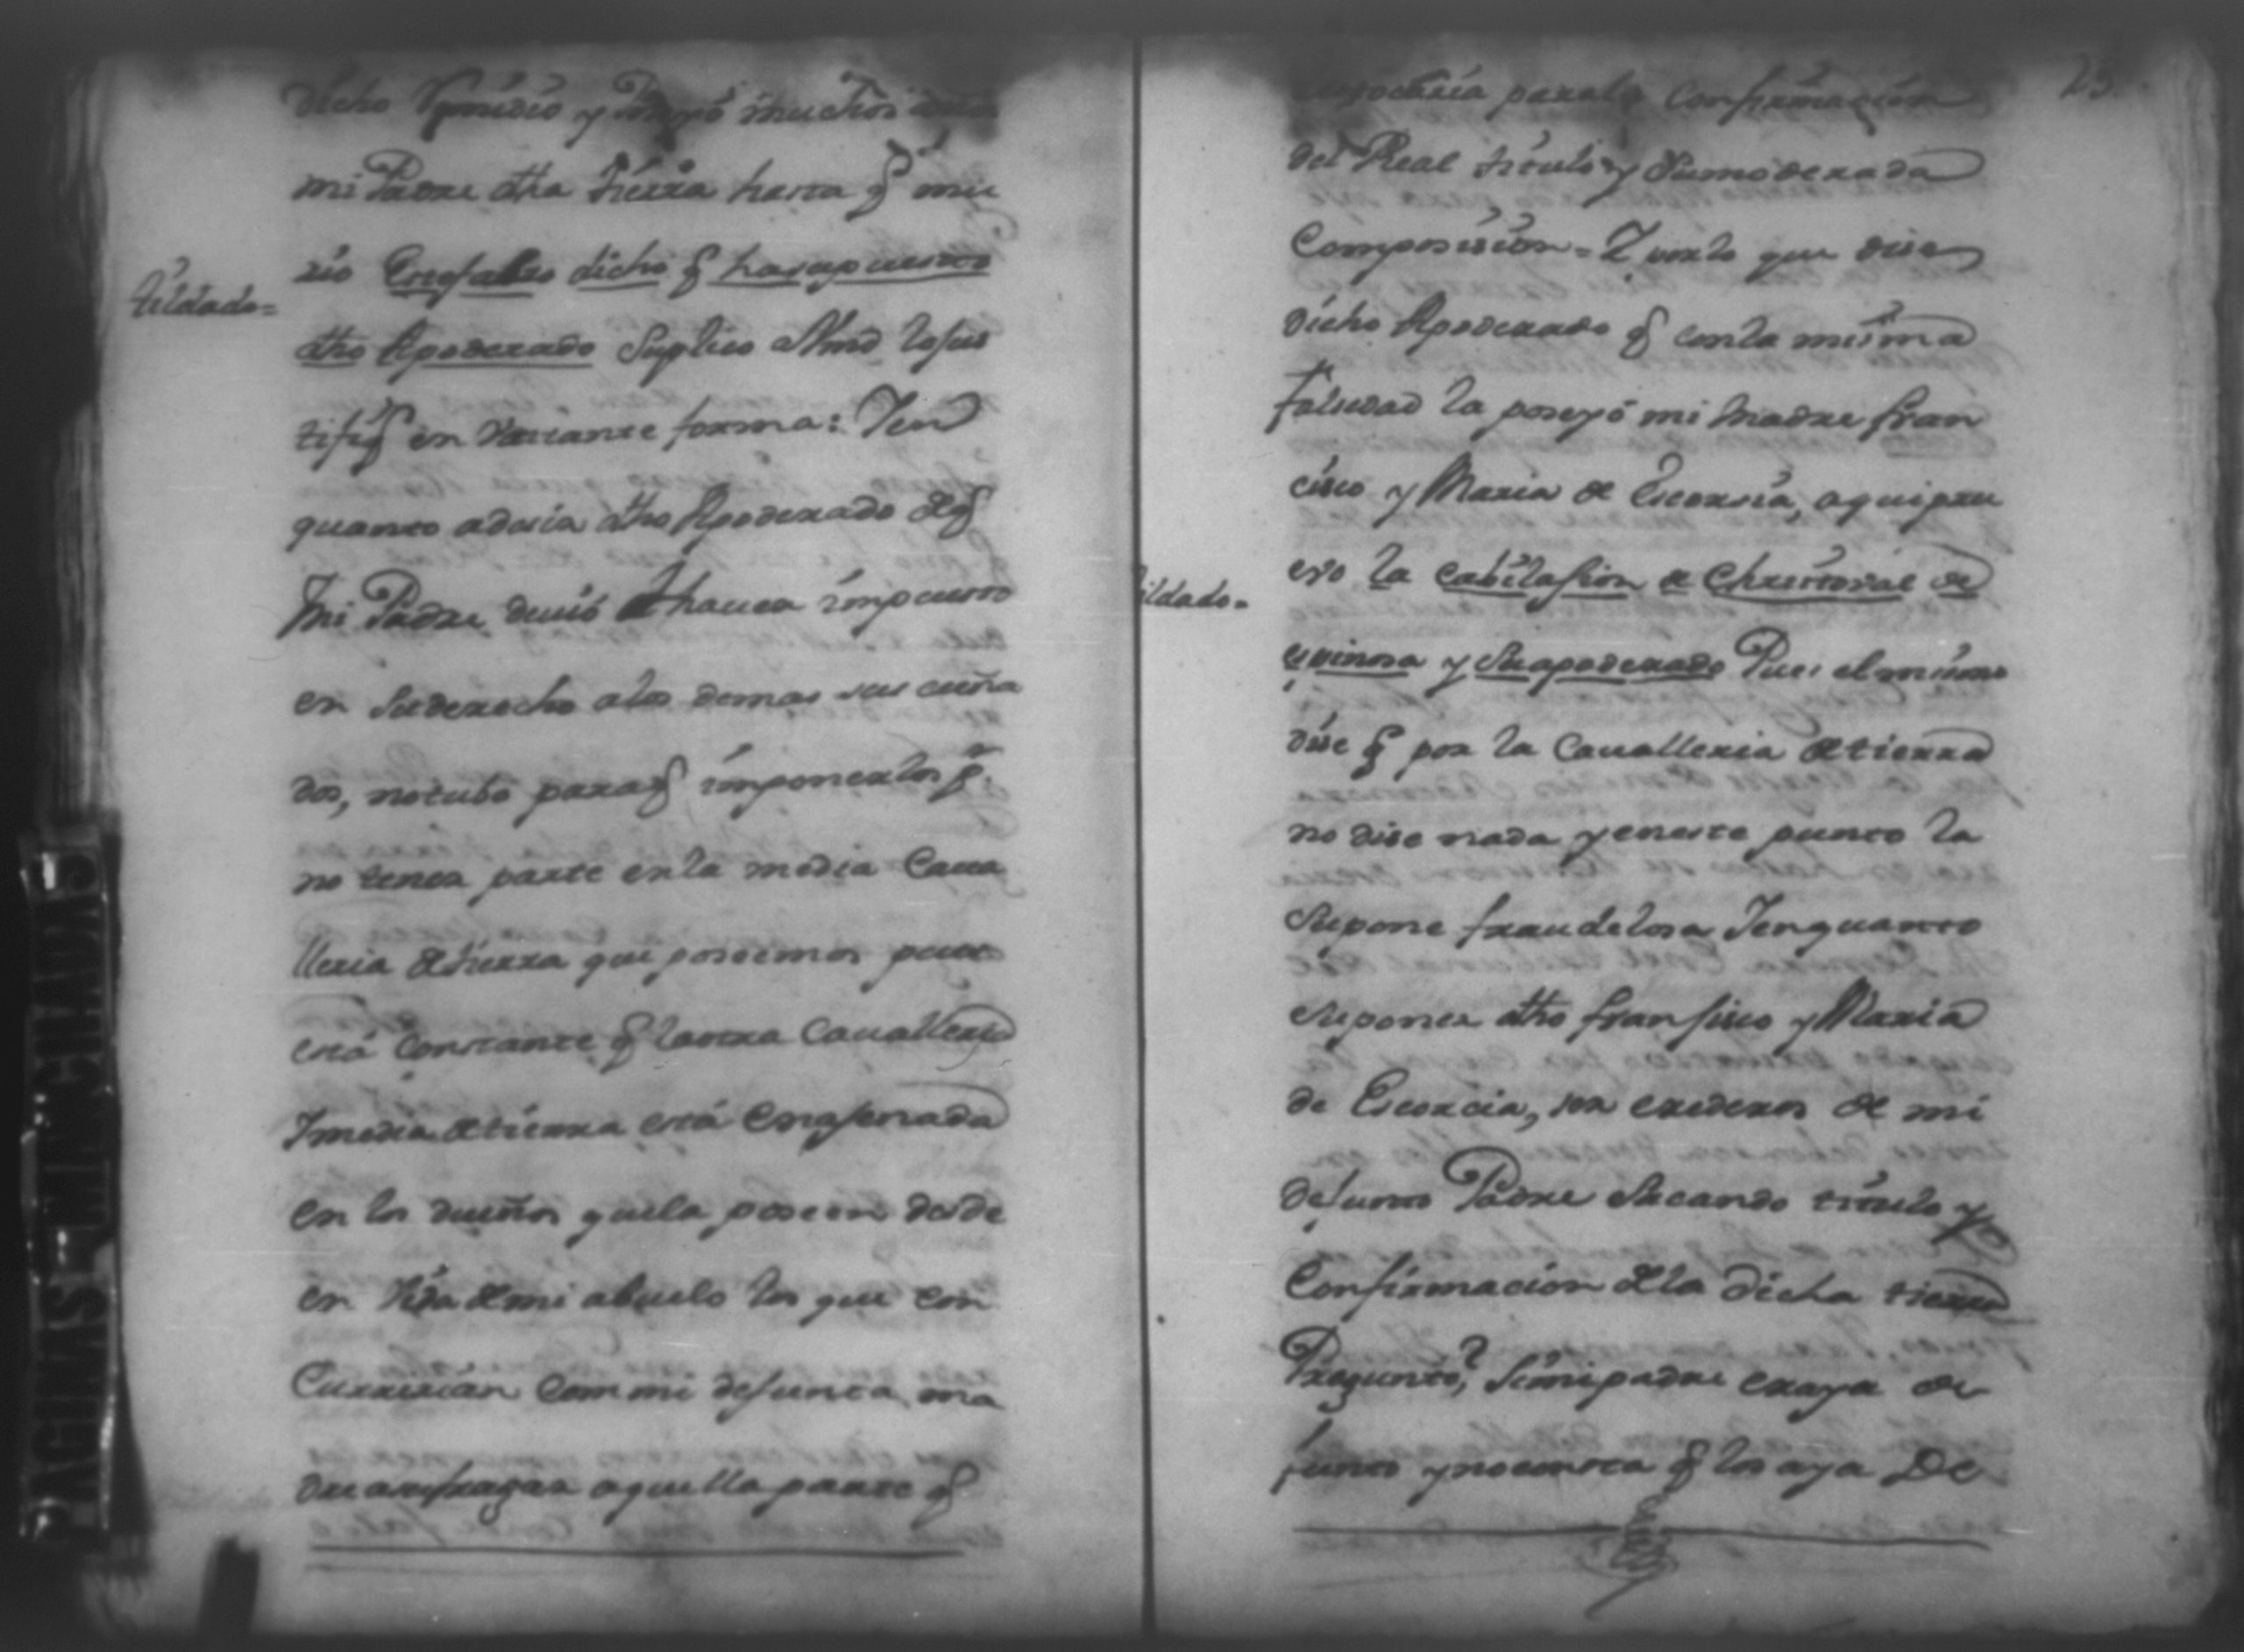 dicho y muchos
mi Padre dha tierra hasta q mu
rio Eesfalso dicho q hasupuesto
tildado=
dho Apoderado Suplico aVmd losus
tifiq en bastante forma: Yen
quanto adesia dho Apoderado deq
Mi Padre devió haver impuesto
en Suderecho alos demas sus cuña
dos, notubo paraq imponerlos p.
no tener parte enla media Cava
lleria detierra que poseemos pues
está Constante q laotra Cavalleria
Ymedia detierra está Engsenada
en los dueños quela poseen desde
en Vida demi abuelo los que con
Currirían Com mi defunta ma
dre aenfragar aquella parte q
25
para la Confirmacion
del Real titulo y Sumoderada
Composision = Y porlo que dise
dicho Apoderado q conla misma
falsedad la poseyó mi Madre fran
cisco y Maria de Escorsia, aquiprue
evo la Cabilasion de Christoval de
tildado=
espinosa y Suapoderado Pues elmismo
dise q por la Cavalleria detierra
no dise nada yeneste punto la
Supone fraudelosa Yenquanto
Suponer dho fransisco y Maria
de Escorcia, son erederos de mi
defunto Padre Sacando titulo y
Confirmacion dela dicha tierra
Pregunto? Simipadre eraya de
funto ynoconsta q los aya De